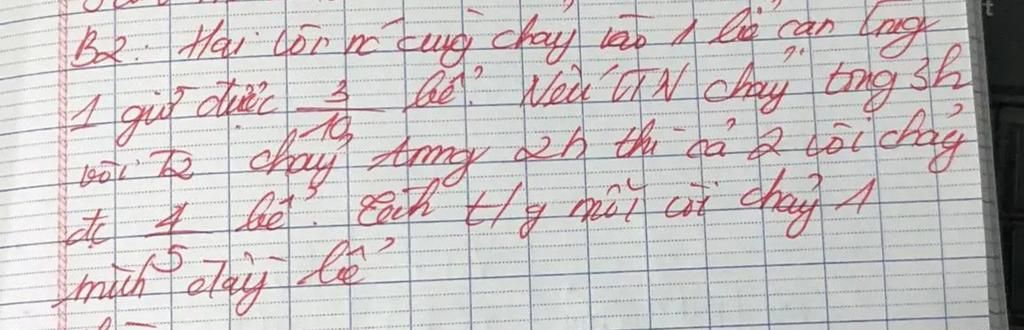 B2: Hai vòi nc cùng chảy vào 1 bể cạn trng
1 giờ được 3/10 bể. Nếu VTN chảy trng 3h
vòi T2 chảy trong 2h thì cả 2 vòi chảy
đc 4/5 bể. Tính t/g mỗi vòi chảy 1
mình đầy bể